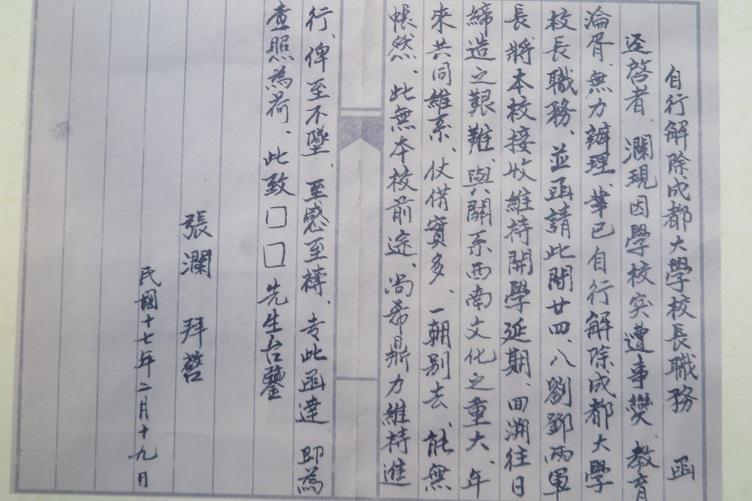 自行解除成都大學校長職務 函
迳啓者、瀾現因學校突遭事變、教育
淪胥、無力辦理、業已自行解除成都大學
校長職務、並函請此間廿四、八劉鄧兩軍
長、將本校接收維持開學延期、回溯往日
締造之艱難、與關系西南文化之重大、年
來共同維系、仗借實多、一朝别去、能無
悵然、此無本校前途、尚希鼎力維持進
行、俾至不墜、至感至禱、专此函達 即為
查照為荷、此致□□先生台鑒
張瀾 拜啓
民國十七年二月十九日